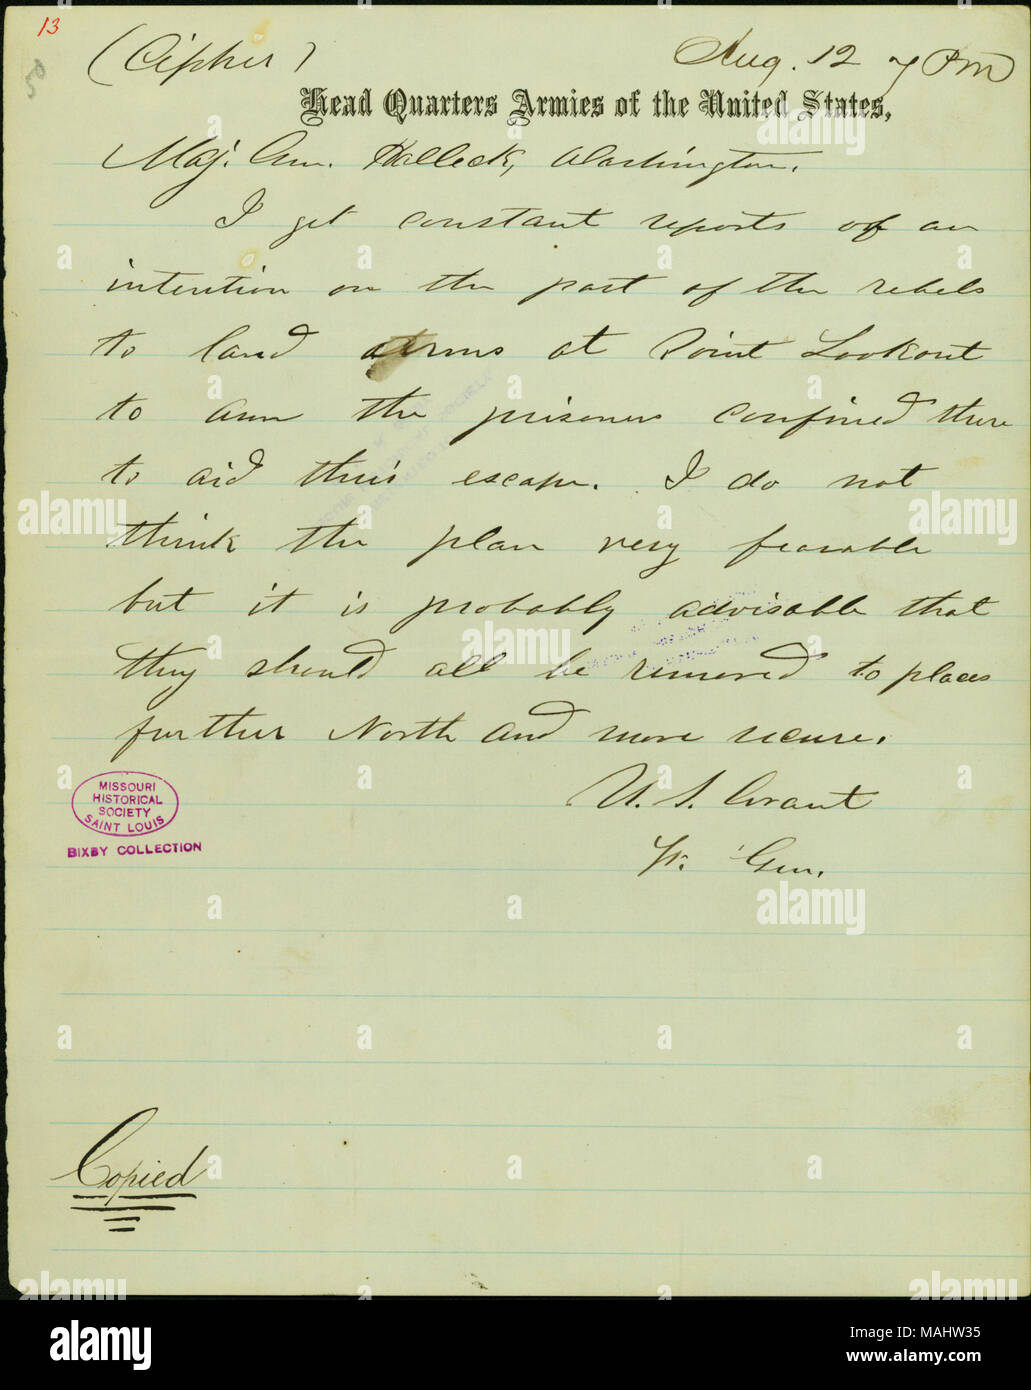 13
(Cipher) Aug. 12 7 PM
Head Quarters Armies of the United States,
Maj. Gen. Halleck, Washington.
I get constant reports of an
intention on the part of the rebels
to land arms at Point Lookout
to arm the prisoners confined there
to aid their escape. I do not
think the plan very feasable
but it is probably advisable that
they should all be removed to places
further North and more secure.
U. S. Grant
Lt. Gen.
MISSOURI
HISTORICAL
SOCIETY
SAINT LOUIS
BIXBY COLLECTION
Copied
alamy
Image ID: MAHW35
www.alamy.com